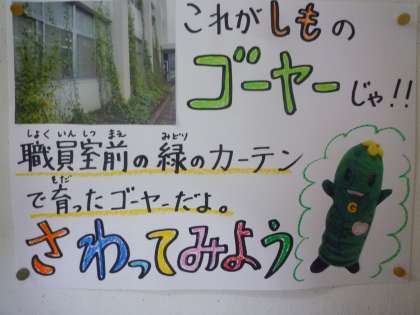 これがしもの
ゴーヤーじゃ!!
しょくいんしつ まえ みどり
職員室前の緑のカーテン
もだ
で育ったゴーヤーだよ。
さわってみよう
G